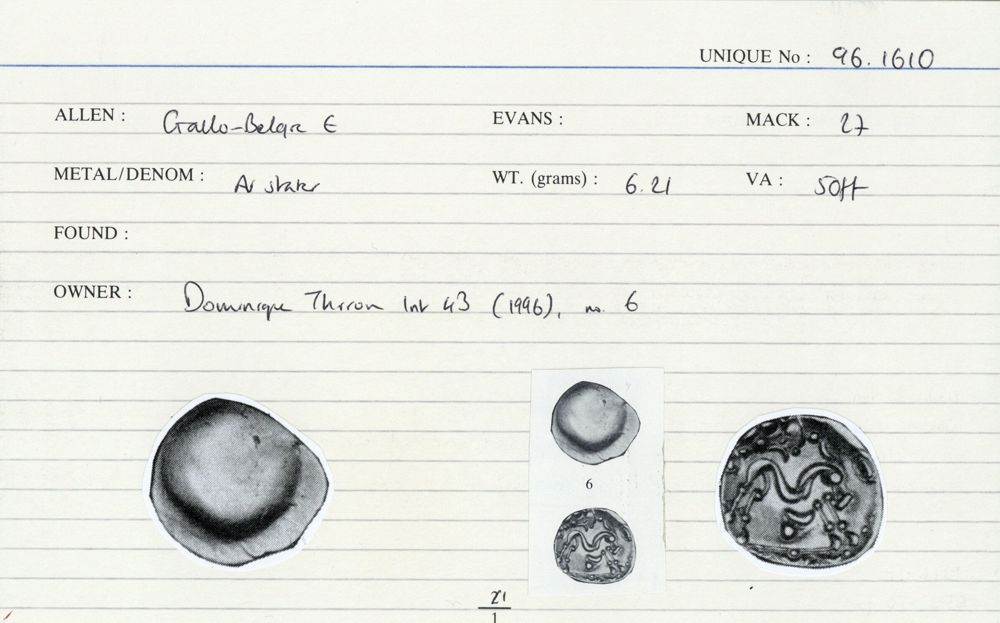 UNIQUE No : 96.1610
ALLEN : Gallo-Belgic E EVANS : MACK : 27
METAL/DENOM : AV stater WT. (grams) : 6.21 VA : 50ff
FOUND :
OWNER : Dominique Thirion Int 43 (1996), no. 6
6
21
1